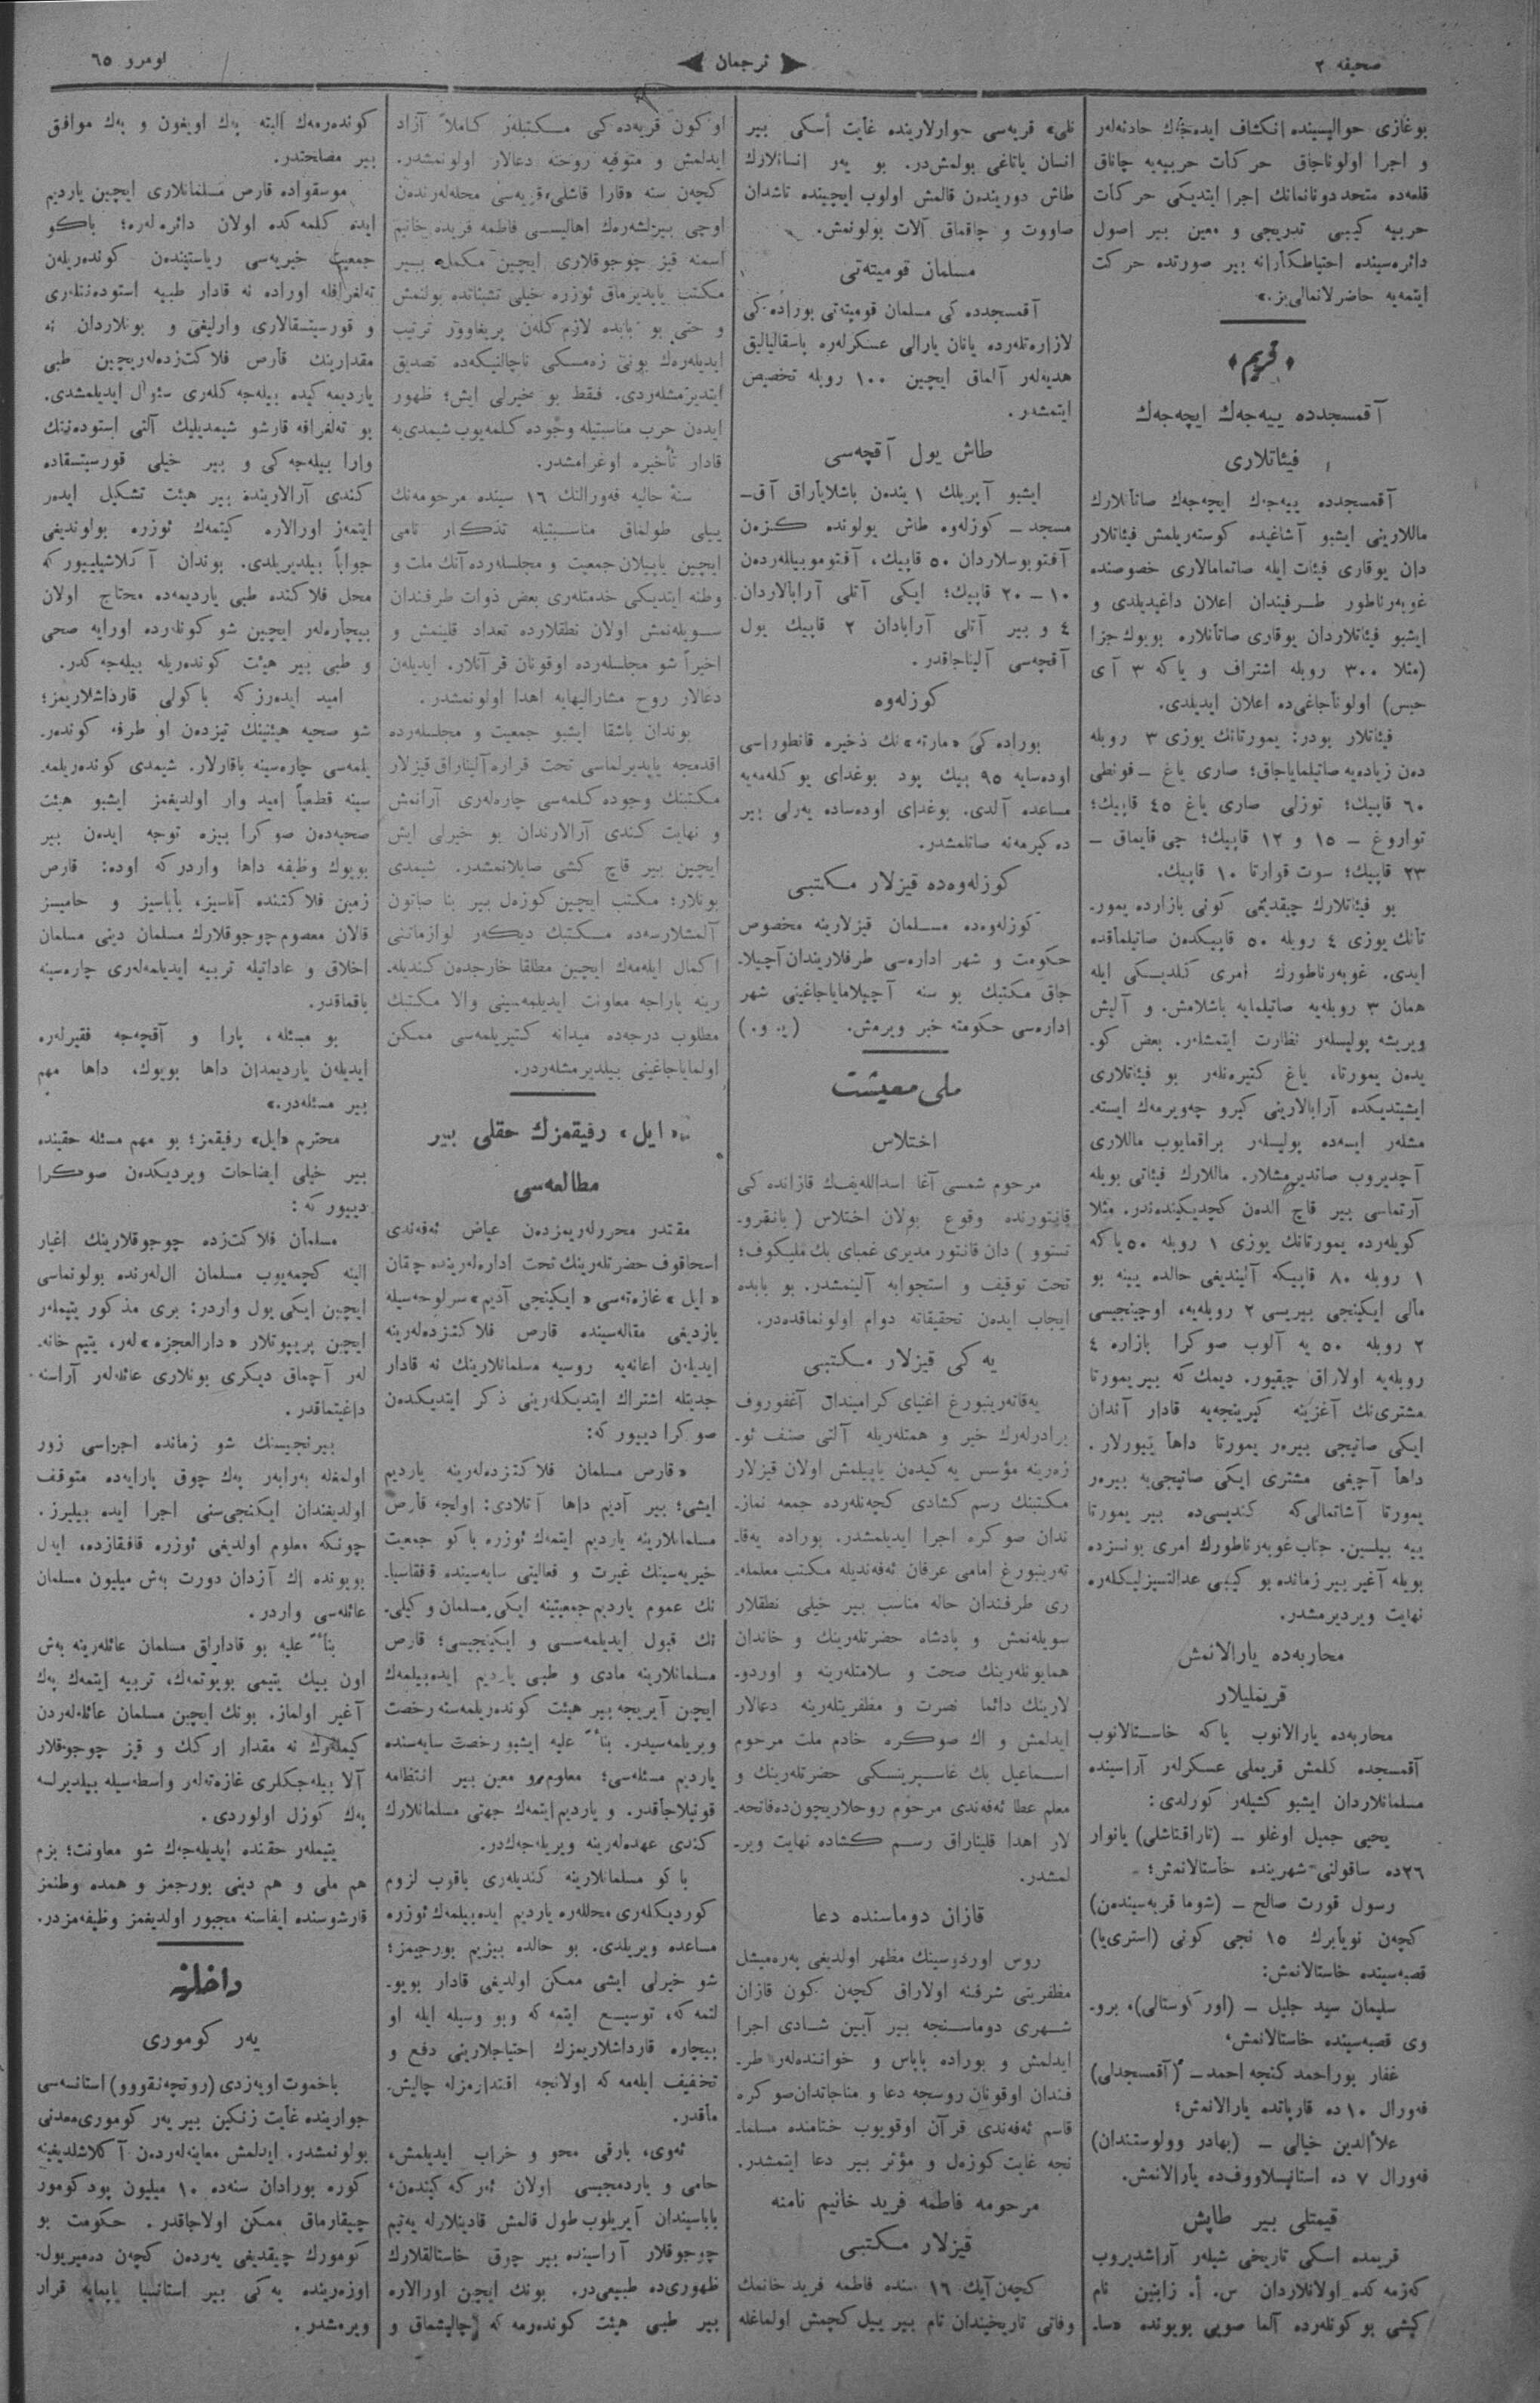 صحیفه ٢
ترجمان
نومرو ٦٥
بوغازی حوالیسینده انکشاف ایده‌جك حادثه‌لەر
و اجرا اولوناجاق حرکات حربیه‌یه چاناق
قلعه‌ده متحد دونانمانك اجرا ایتدیکی حرکات
حربیه کیبی تدریجی و معین بیر اصول
دائره‌سینده احتیاطکارانه بیر صورتده حرکت
ایتمه‌یه حاضرلانمالی‌یز.»
﴿قریم﴾
آقمسجدده ییه‌جەك ایچه‌جەك
فیئاتلاری
آقمسجدده ییه‌جەك ایچه‌جەك صاتانلارك
ماللارینی ایشبو آشاغیده کوستەریلمش فیئاتلار
دان یوقاری فیئات ایله صاتمامالاری خصوصنده
غوبەرناطور طـرفیندان اعلان داغیدیلدی و
ایشبو فیئاتلاردان یوقاری صاتانلاره بویوك جزا
(مثلا ٣٠٠ روبله اشتراف و یاکه ٣ آی
حبس) اولوناجاغی‌ده اعلان ایدیلدی.
فیئاتلار بودر: یمورتانك یوزی ٣ روبله
دەن زیاده‌یه صاتیلمایاجاق؛ صاری یاغ ـ فونطی
٦٠ قاپیك؛ توزلی صاری یاغ ٤٥ قاپیك؛
تواروغ ـ ١٥ و ١٢ قاپیك؛ چی قایماق ـ
٢٣ قاپیك؛ سوت قوارتا ١٠ قاپیك.
بو فیئاتلارك چیقدیغی کونی بازارده یمور-
تانك یوزی ٤ روبله ٥٠ قاپیکدەن صاتیلماقده
ایدی. غوبەرناطورك امری کلدیـکی ایله
همان ٣ روبله‌یه صاتیلمایه باشلامش. و آلیش
ویریشه پولیسلەر نظارت ایتمشلەر. بعض کو-
یدەن یمورتا، یاغ کتیرەنلەر بو فیئاتلاری
ایشیتدیکده آرابالارینی کیرو چەویرمەك ایسته-
مشلەر ایسه‌ده پولیسلەر براقمایوب ماللاری
آچدیروب صاتدیرمشلار. ماللارك فیئاتی بویله
آرتماسی بیر قاچ الدەن کچدیکیندەندر. مثلا
کویلەرده یمورتانك یوزی ١ روبله ٥٠ یاکه
١ روبله ٨٠ قاپیکه آلیندیغی حالده یینه بو
مالی ایکینجی بیریسی ٢ روبله‌یه، اوچینجیسی
٢ روبله ٥٠ یه آلوب صوکرا بازاره ٤
روبله‌یه اولاراق چیقیور. دیمك که بیر یمورتا
مشتری‌نك آغزینه کیرینجه‌یه قادار آندان
ایکی صاتیجی بیرەر یمورتا داها ییورلار.
داها آچیغی مشتری ایکی صاتیجی‌یه بیرەر
یمورتا آشاتمالی‌که کندیسی‌ده بیر یمورتا
ییه بیلسین. جناب غوبەرناطورك امری بونسزده
بویله آغیر بیر زمانده بو کیبی عدالتسیزلیکلەره
نهایت ویردیرمشدر.
محاربه‌ده یارالانمش
قریملیلار
محاربه‌ده یارالانوب یاکه خاستالانوب
آقمسجده کلمش قریملی عسکرلەر آراسینده
مسلمانلاردان ایشبو کشیلەر کورلدی:
یحیی جمیل اوغلو ـ (تاراقتاشلی) یانوار
٢٦ده ساقولنی شهرینده خاستالانمش؛
رسول قورت صالح ـ (شوما قریه‌سیندەن)
کچەن نویابرك ١٥ نجی کونی (استری‌یا)
قصبه‌سینده خاستالانمش:
سلیمان سید جلیل ـ (اور کوستالی)، برو-
وی قصبه‌سینده خاستالانمش،
غفار بوراحمد کنجه احمد ـ (آقمسجدلی)
فەورال ١٠ ده قارپاتده یارالانمش؛
علاالدین خیالی ـ (بهادر وولوستندان)
فەورال ٧ ده استانیسلاووف‌ده یارالانمش.
قیمتلی بیر طاپش
قریمده اسکی تاریخی شیلەر آراشدیروب
کەزمه‌کده اولانلاردان س. أ. زابنین نام
کیشی بو کونلەرده آلما صویی بویونده «سا-
نلی» قریه‌سی جوارلارینده غایت أسکی بیر
انسان یاتاغی بولمش‌در. بو یەر انسانلارك
طاش دوریندەن قالمش اولوب ایچینده تاشدان
صاووت و چاقماق آلات بولونمش.
مسلمان قومیته‌تی
آقمسجدده کی مسلمان قومیته‌تی بوراده‌کی
لازاره‌تلەرده یاتان یارالی عسکرلەره پاسقالیالیق
هدیه‌لەر آلماق ایچین ١٠٠ روبله تخصیص
ایتمشەر.
طاش یول آقچه‌سی
ایشبو آپریلك ١ یندەن باشلایاراق آق-
مسجد ـ کوزله‌وه طاش یولونده کـزەن
آفتوبوسلاردان ٥٠ قاپیك، آفتوموبیللەردەن
١٠ ـ ٢٠ قاپیك؛ ایکی آتلی آرابالاردان
٤ و بیر آتلی آرابادان ٢ قاپیك یول
آقچه‌سی آلیناجاقدر.
کوزله‌وه
بوراده‌کی «مارته»نك ذخیره قانطوراسی
اوده‌سایه ٩٥ بیك پود بوغدای یوکله‌مه‌یه
مساعده آلدی. بوغدای اوده‌ساده یەرلی بیر
ده‌کیرمه‌نه صاتلمشدر.
کوزله‌وه‌ده قیزلار مکتبی
کوزله‌وه‌ده مسـلمان قیزلارینه مخصوص
حکومت و شهر اداره‌سی طرفلاریندان آچیلا-
جاق مکتبك بو سنه آچیلامایاجاغینی شهر
اداره‌سی حکومته خبر ویرمش. (ی. و.)
ملی معیشت
اختلاس
مرحوم شمسی آغا اسدالله‌یفـك قازانده کی
قانتورنده وقوع بولان اختلاس (بانقرو-
تستوو) دان قانتور مدیری غمبای بك ملیکوف؛
تحت توقیف و استجوابه آلینمشدر. بو بابده
ایجاب ایدەن تحقیقاته دوام اولونماقده‌در.
یەکی قیزلار مکتبی
یەقاته‌رینبورغ اغنیای کرامیندان آغفوروف
برادرلەرك خیر و همتلەریله آلتی صنف ئو-
زەرینه مؤسس یەکیدەن یاپیلمش اولان قیزلار
مکتبنك رسم کشادی کچەنلەرده جمعه نماز-
ندان صوکره اجرا ایدیلمشدر. بوراده یەقا-
ته‌رینبورغ امامی عرفان ئه‌فه‌ندیله مکتب معلمله-
ری طرفندان حاله مناسب بیر خیلی نطقلار
سویله‌نمش و پادشاه حضرتلەرینك و خاندان
همایونلەرینك صحت و سلامتلەرینه و اوردو-
لارینك دائما نصرت و مظفریتلەرینه دعالار
ایدلمش و اك صوکـره خادم ملت مرحوم
اسـماعیل بك غاسـپرینسـکی حضرتلەرینك و
معلم عطا ئه‌فه‌ندی مرحوم روحلاریچون‌ده فاتحه-
لار اهدا قلیناراق رسـم کشاده نهایت ویر-
لمشدر.
قازان دوماسنده دعا
روس اوردوسینك مظهر اولدیغی پەره‌میشل
مظفریتی شرفنه اولاراق کچەن کون قازان
شـهری دوماسـنجه بیر آیین شـادی اجرا
ایدلمش و بوراده پاپاس و خواننده‌لەر طر-
فندان اوقونان روسجه دعا و مناجاتدان‌صوکره
قاسم ئه‌فه‌ندی قرآن اوقویوب ختامنده مسلما-
نجه غایت کوزه‌ل و مؤثر بیر دعا ایتمشدر.
مرحومه فاطمه فرید خانیم نامنه
قیزلار مکتبی
کچەن آیك ١٦ سنده فاطمه فرید خانمك
وفاتی تاریخیندان تام بیر ییل کچمش اولماغله
او کون قریه‌ده‌کی مـکتبلەر کاملاً آزاد
ایدلمش و متوفیه روحنه دعالار اولونمشدر.
کچەن سنه «قارا قاشلی» قریه‌سی محله‌لەرندەن
اوچی بیرلشەرەك اهالیسـی فاطمه فریده خانیم
اسمنه قیز چوجوقلاری ایچین مکمل بـیر
مکتب یاپدیرماق ئوزره خیلی تشبثاتده بولنمش
و حتی بو بابده لازم کلەن پریغاوور ترتیب
ایدیلەرەك بونی زه‌مسـکی ناچالنیکه‌ده تصدیق
ایتدیرتمشلەردی. فقط بو خیرلی ایش؛ ظهور
ایدەن حرب مناسبتیله وجوده کـلمه‌یوب شیمدی‌یه
قادار تأخیره اوغرامشدر.
سنهٔ حالیه فەورالنك ١٦ سینده مرحومه‌نك
ییلی طولماق مناسـبتیله تذکار نامی
ایچین یاپیلان جمعیت و مجلسلەرده آنك ملت و
وطنه ایتدیکی خدمتلەری بعض ذوات طرفندان
سـویله‌نمش اولان نطقلارده تعداد قلینمش و
اخیراً شو مجلسلەرده اوقونان قرآنلار. ایدیلەن
دعالار روح مشارالیهایه اهدا اولونمشدر.
بوندان باشقا ایشبو جمعیت و مجلسلەرده
اقدمجه یاپدیرلماسی تحت قراره آلیناراق قیزلار
مکتبنك وجوده کـلمه‌سی چاره‌لەری آرانمش
و نهایت کندی آرالارندان بو خیرلی ایش
ایچین بیر قاچ کشی صایلانمشدر. شیمدی
بونلار؛ مکتب ایچین کوزه‌ل بیر بنا صاتون
آلمشلارسه‌ده مـکتبك دیکه‌ر لوازماتنی
اکمال ایله‌مەك ایچین مطلقا خارجدەن کندیله-
رینه پاراجه معاونت ایدیلمه‌سینی والا مکتبك
مطلوب درجه‌ده میدانه کتیریلمه‌سی ممکن
اولمایاجاغینی بیلدیرمشلەردر.
«ایل» رفیقمزك حقلی بیر
مطالعه‌سی
مقتدر محررلەریمزدەن عیاض ئه‌فه‌ندی
اسحاقوف حضرتلەرینك تحت اداره‌لەرینده چقان
«ایل» غازه‌ته‌سی «ایکینجی آدیم» سرلوحه‌سیله
یازدیغی مقاله‌سینده قارص فلاکتزده‌لەرینه
ایدیلەن اعانه‌یه روسیه مسلمانلارینك نه قادار
جدیتله اشتراك ایتدیکلەرینی ذکر ایتدیکدەن
صوکرا دییور که:
«قارص مسلمان فلاکتزده‌لەرینه یاردیم
ایشی؛ بیر آدیم داها آتلادی: اولجه قارص
مسلمانلارینه یاردیم ایتمەك ئوزره باکو جمعیت
خیریه‌سینك غیرت و فعالیتی سایه‌سینده قفقاسیا-
نك عموم یاردیم جمعیتینه ایکی مسلمان وکیلی-
نك قبول ایدیلمه‌سـی و ایکینجیسی؛ قارص
مسلمانلارینه مادی و طبی یاردیم ایده‌بیلمەك
ایچین آیریجه بیر هیئت کوندەریلمه‌سنه رخصت
ویریلمه‌سیدر. بناءً علیه ایشبو رخصت سایه‌سنده
یاردیم مسئله‌سی؛ معلوم و معین بیر انتظامه
قونیلاجاقدر. و یاردیم ایتمەك جهتی مسلمانلارك
کندی عهده‌لەرینه ویریله‌جەك‌در.
باکو مسلمانلارینه کندیلەری باقوب لزوم
کوردیکلەری محللەره یاردیم ایده‌بیلمەك ئوزره
مساعده ویریلدی. بو حالده بیزیم بورجیمز؛
شو خیرلی ایشی ممکن اولدیغی قادار بویو-
لتمه‌که، توسیـع ایتمه‌که وبو وسیله ایله او
بیچاره قارداشلاریمزك احتیاجلارینی دفع و
تخفیف ایله‌مه‌که اولانجه اقتدارمزله چالیش-
ماقدر.
ئه‌وی، بارقی محو و خراب ایدیلمش،
حامی و یاردمجیسی اولان ئەرکەکیندەن،
باباسیندان آیریلوب طول قالمش قادینلارله یەتیم
چوجوقلار آراسینده بیر چوق خاستالقلارك
ظهوری‌ده طبیعی‌در. بونك ایچین اورالاره
بیر طبی هیئت کوندەرمه‌که چالیشماق و
کوندەرمەك البته پەك اویغون و پەك موافق
بیر مصلحتدر.
موسقواده قارص مسلمانلاری ایچین یاردیم
ایده کلمه‌کده اولان دائره‌لەره؛ باکو
جمعیت خیریه‌سی ریاستیندەن کوندەریلەن
تەلغرافله اوراده نه قادار طبیه استودەنتلەری
و قورسیتسقالاری وارلیغی و بونلاردان نه
مقدارینك قارص فلاکتزده‌لەریچین طبی
یاردیمه کیده بیله‌جەکلەری سئوال ایدیلمشدی.
بو تەلغرافه قارشو شیمدیلیك آلتی استودەنتك
وارا بیله‌جەکی و بیر خیلی قورسیتسقاده
کندی آرالارینده بیر هیئت تشکیل ایدەر
ایتمەز اورالاره کیتمەك ئوزره بولوندیغی
جواباً بیلدیریلدی. بوندان آکلاشیلییورکه
محل فلاکتده طبی یاردیمه‌ده محتاج اولان
بیچاره‌لەر ایچین شو کونلەرده اورایه صحی
و طبی بیر هیئت کوندەریله بیله‌جەکدر.
امید ایدەرزکه باکولی قارداشلاریمز؛
شو صحیه هیئتینك تیزدەن او طرفه کوندەر-
یلمه‌سی چاره‌سینه باقارلار. شیمدی کوندەریلمه-
سینه قطعیاً امید وار اولدیغمز ایشبو هیئت
صحیه‌دەن صوکرا بیزه توجه ایدەن بیر
بویوك وظیفه داها واردرکه اوده: قارص
زمین فلاکتنده آناسیز، باباسیز و حامیسز
قالان معصوم چوجوقلارك مسلمان دینی مسلمان
اخلاق و عاداتیله تربیه ایدیلمه‌لەری چاره‌سینه
باقماقدر.
بو مسئله، پارا و آقچه‌جه فقیرلەره
ایدیلەن یاردیمدان داها بویوك، داها مهم
بیر مسئله‌در.»
محترم «ایل» رفیقمز؛ بو مهم مسئله حقینده
بیر خیلی ایضاحات ویردیکدەن صوکرا
دییور که:
مسلمان فلاکتزده چوجوقلارینك اغیار
الینه کچمه‌یوب مسلمان ال‌لەرنده بولونماسی
ایچین ایکی یول واردر: بری مذکور یتیملەر
ایچین پریوتلار «دارالعجزه»لەر، یتیم خانه-
لەر آچماق دیکری بونلاری عائله‌لەر آراسنه
داغیتماقدر.
بیرنجیسنك شو زمانده اجراسی زور
اولمغله بەرابەر پەك چوق پارایه‌ده متوقف
اولدیغندان ایکنجی‌سنی اجرا ایده بیلیرز.
چونکه معلوم اولدیغی ئوزره قافقازده، ایدل
بویونده اك آزدان دورت بەش میلیون مسلمان
عائله‌سی واردر.
بناءً علیه بو قاداراق مسلمان عائله‌لرینه بەش
اون بیك یتیمی بویوتمەك، تربیه ایتمەك پەك
آغیر اولماز. بونك ایچین مسلمان عائله‌لەردن
کیملەرك نه مقدار ارکك و قیز چوجوقلار
آلا بیله‌جکلری غازه‌ته‌لەر واسطه‌سیله بیلدیرلسه
پەك کوزل اولوردی.
یتیملەر حقنده ایدیله‌جەك شو معاونت؛ بزم
هم ملی و هم دینی بورجمز و همده وطنمز
قارشوسنده ایفاسنه مجبور اولدیغمز وظیفه‌مزدر.
داخلیه
یەر کوموری
باخموت اویەزدی (روتچەنقووو) استانسه‌سی
جوارینده غایت زنکین بیر یەر کوموری معدنی
بولونمشدر. ایدلمش معاینه‌لەردەن آکلاشلدیغینه
کوره بورادان سنه‌ده ١٠ میلیون پود کومور
چیقارماق ممکن اولاجاقدر. حکومت بو
کومورك چیقدیغی یەردەن کچەن دەمیریول-
اوزەرینده یەکی بیر استانسیا یاپمایه قرار
ویرمشدر.